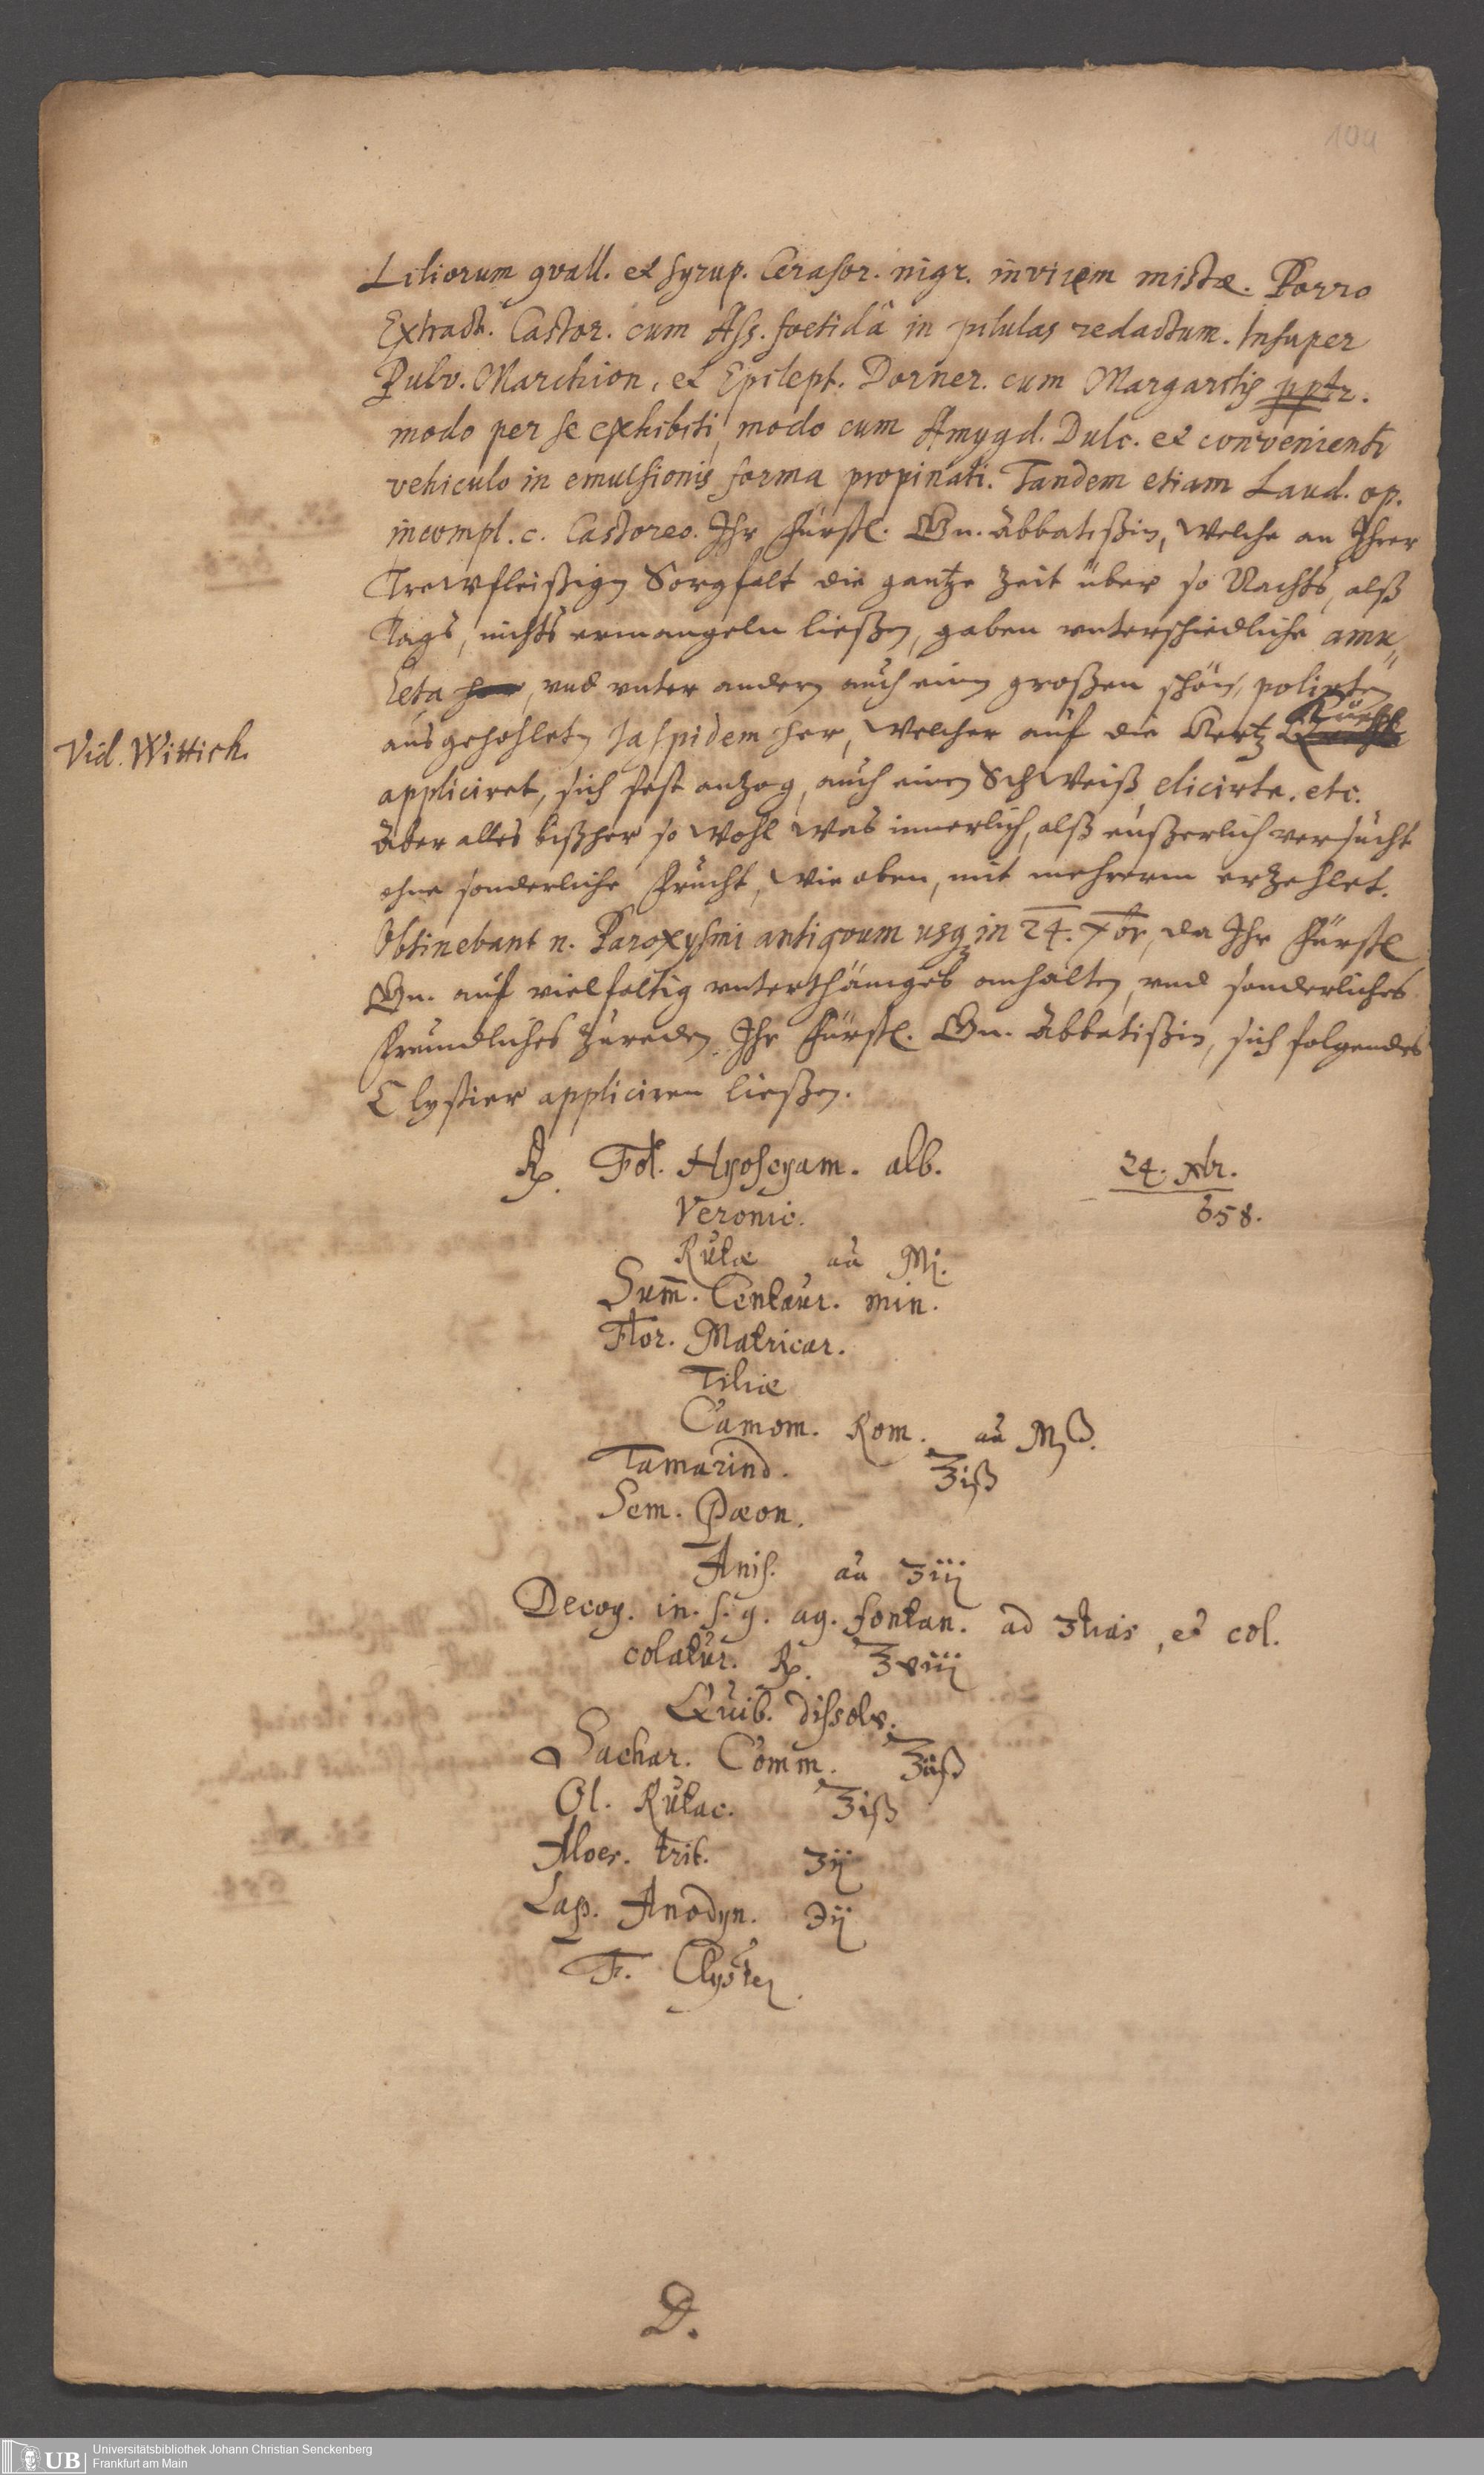 104
Liliorum qvall. et syrup. Cerasor. nigr. invicem mistæ. Porro
Extract. Castor. cum Ass. foetidâ in pilulas redactum. Insuper
Pulv. Marchion. et Epilept. Dorner. cum Margaritis pptr.
modo per se exhibiti, modo cum Amygd. Dulc. et convenienti
vehiculo in emulsionis forma propinati. Tandem etiam Laud. op.
incompl. c. Castoreo. Ihr Fürstl. Gn. Äbbatißin, welche an Ihrer
Trewfleißigen Sorgfalt die gantze Zeit über so Nachts, alß
Tags, nichts ermangeln ließen, gaben unterschiedliche amu„
leta her, und unter andern auch einen großen schön, polirten
Vid. Wittich.
ausgehohleten Jaspidem her, welcher auf die Hertz Grueb
appliciret, sich fest anzog, auch einen Schweiß elicirte. etc.
Aber alles bißher so wohl was innerlich, alß eußerlich versucht
ohne sonderliche Frucht, wie oben, mit mehrerm erzehlet.
Obtinebant n. Paroxysmi antiqvum usq in 24. Xbr, da Ihr Fürstl
Gn. auf vielfaltig unterthäniges anhalten, und sonderliches
freundliches Zureden Ihr Fürstl. Gn. Äbbatißin, sich folgendes
Clystier appliciren ließen.
24. Xbr.
658.
℞. Fol. Hyoscyam. alb.
Veronic.
Rutæ aa Mj.
Sum̄. Centaur. min.
Flor. Matricar.
Tiliæ
Camom. Rom. aa Mß.
Tamarind. ℥iß
Sem. Pæon.
Anis. aa ʒiij
Decoq. in. s. q. aq. fontan. ad 3tias, et col.
colatur. ℞. ℥viij
Quib. dissolv.
Sachar. Comm. ℥iiß
Ol. Rutac. ℥iß
Aloes. trit. ʒij
Lap. Anodyn. ℈ij
F. Clyster.
D.
UB
Universitätsbibliothek Johann Christian Senckenberg
Frankfurt am Main